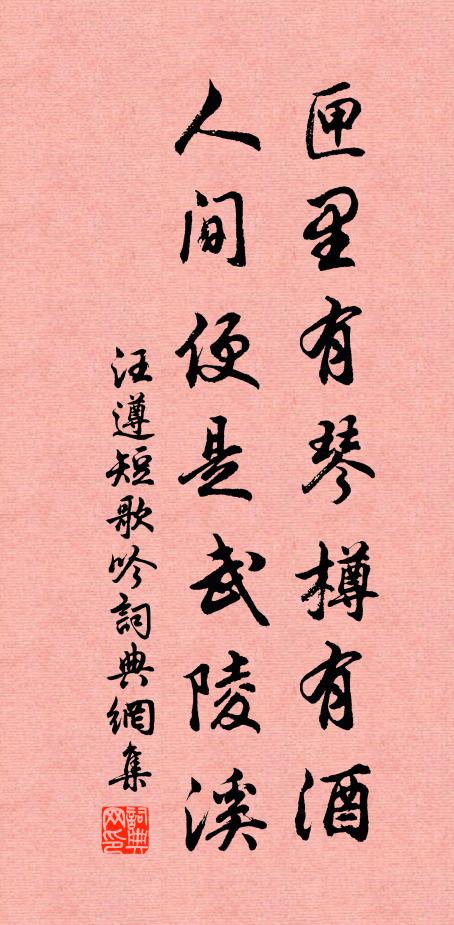 匣里有琴樽有酒
人间便是武陵溪
汪遵短歌吟詞典網集
詞典网印